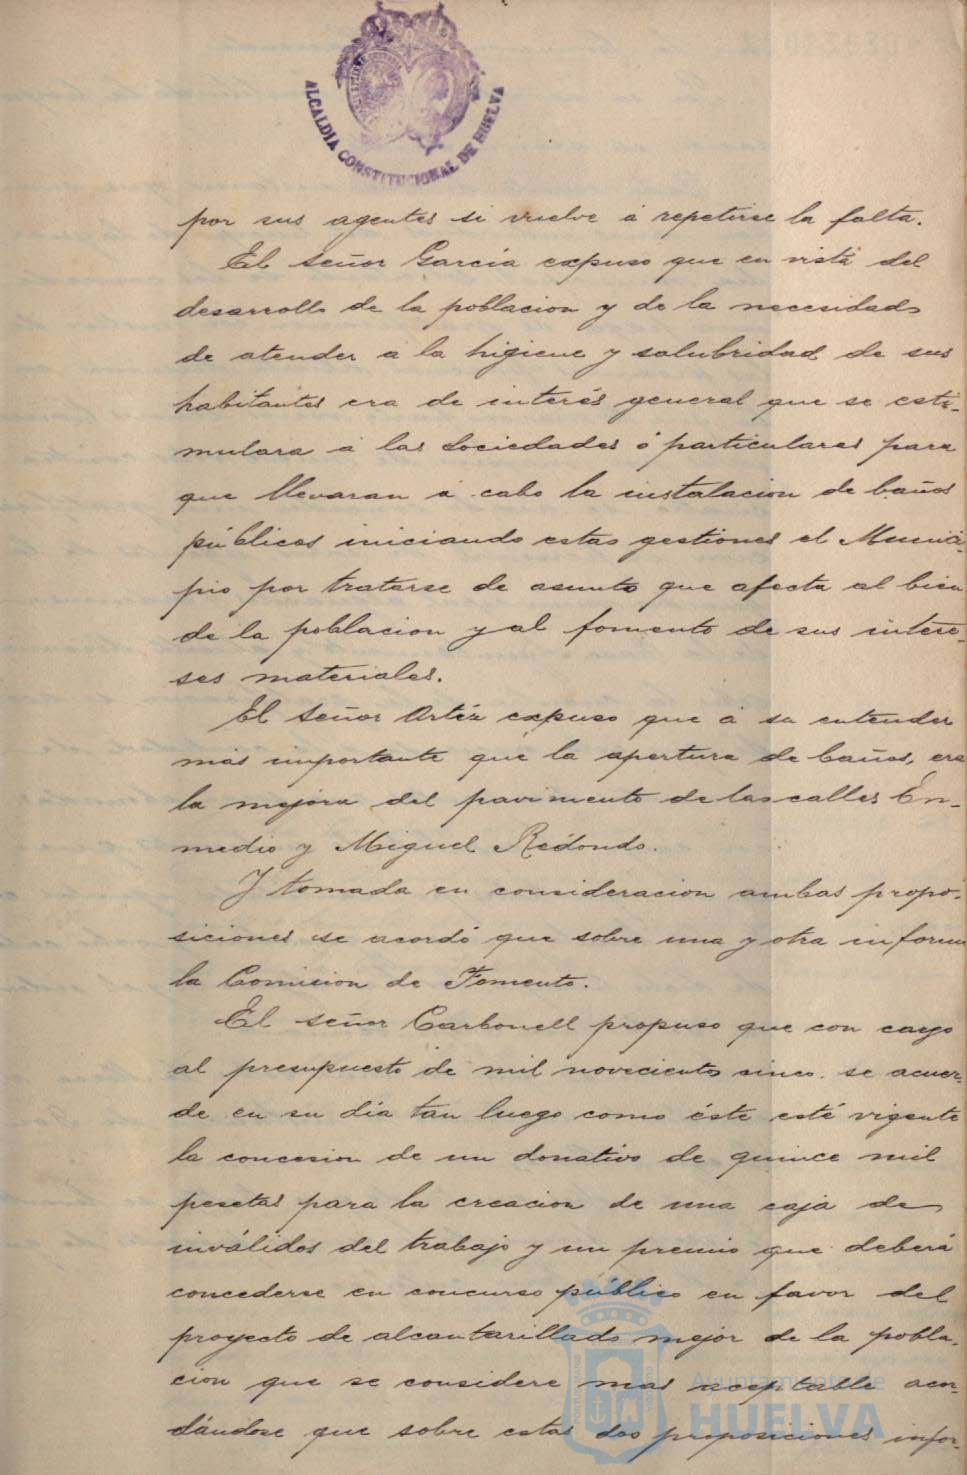 ALCALDIA CONSTITUCIONAL DE HUELVA
por sus agentes si vuelve á repetirse la falta.
El señor García expuso que en vista del
desarrollo de la poblacion y de la necesidad
de atender á la higiene y salubridad de sus
habitantes era de interés general que se esti-
mulara á las Sociedades ó particulares para
que llevaran á cabo la instalacion de baños
públicos iniciando estas gestiones el Munici-
pio por tratarse de asunto que afecta al bien
de la poblacion y al fomento de sus intere-
ses materiales.
El señor Ortiz expuso que á su entender
mas importante que la apertura de baños, era
la mejora del pavimento de las calles En-
medio y Miguel Redondo.
Y tomada en consideracion ambas propo-
siciones se acordó que sobre una y otra informe
la Comision de Fomento.
El señor Carbonell propuso que con cargo
al presupuesto de mil novecientos cinco se acuer-
de en su dia tan luego como éste esté vigente
la concesion de un donativo de quince mil
pesetas para la creacion de una caja de
inválidos del trabajo y un premio que deberá
concederse en concurso público en favor del
proyecto de alcantarillado mejor de la pobla-
cion que se considere mas aceptable acor-
dándose que sobre estas dos proposiciones infor-
Ayuntamiento de
HUELVA